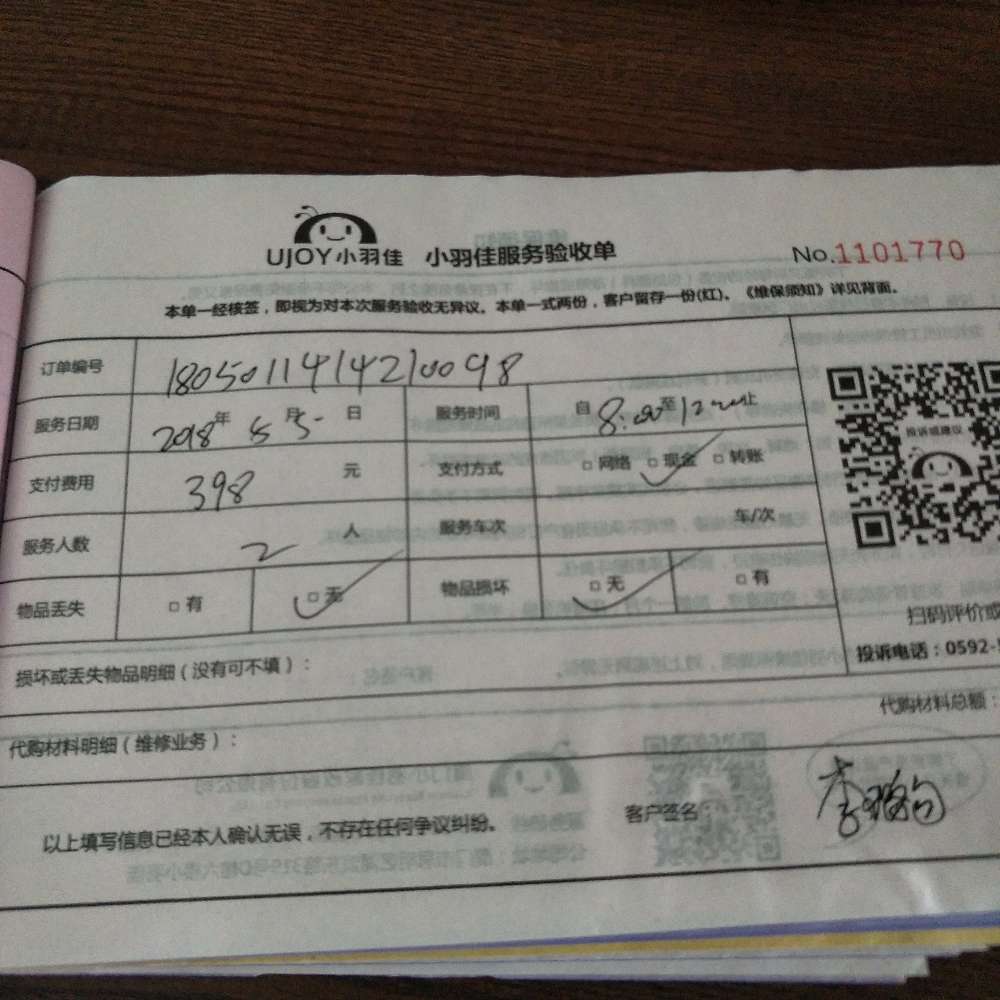 UJOY小羽佳 小羽佳服务验收单 No.1101770
本单一经核签，即视为对本次服务验收无异议。本单一式两份，客户留存一份(红)。《维保须知》详见背面。
订单编号 1805011414210098
服务日期 2018年 5月 5日 服务时间 自8:00至12:00止
支付费用 398 元 支付方式 □网络 □现金 □转账
投诉或建议
服务人数 2 人 服务车次 车/次
物品丢失 □有 □无 物品损坏 □无 □有
扫码评价或
投诉电话：0592-
损坏或丢失物品明细（没有可不填）：
代购材料总额：
代购材料明细（维修业务）：
以上填写信息已经本人确认无误，不存在任何争议纠纷。 客户签名 李